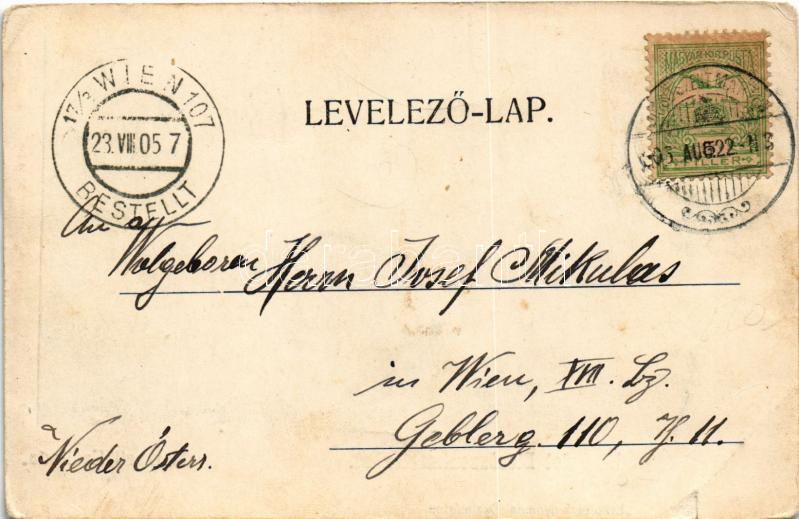 17/3 WIEN 107
23.VIII.05 7
BESTELLT
LEVELEZŐ-LAP.
MAGYAR KIR. POSTA
905 AUG 22
FILLER
An
Wolgeboren Herrn Josef Mikulas
in Wien, XVII. Bz.
Geblerg. 110, II. 11.
Nieder Österr.
darabanth